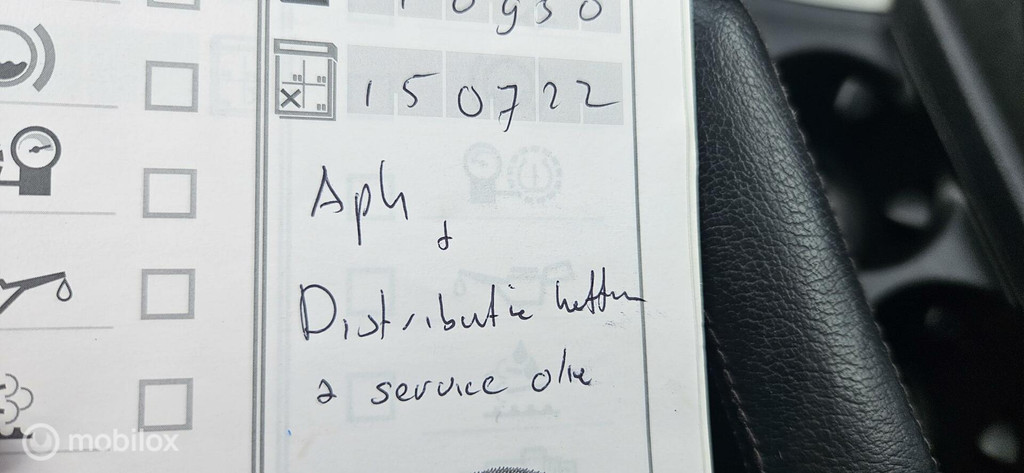 150722
Apk
&
Distributie ketten
& service olie
mobilox